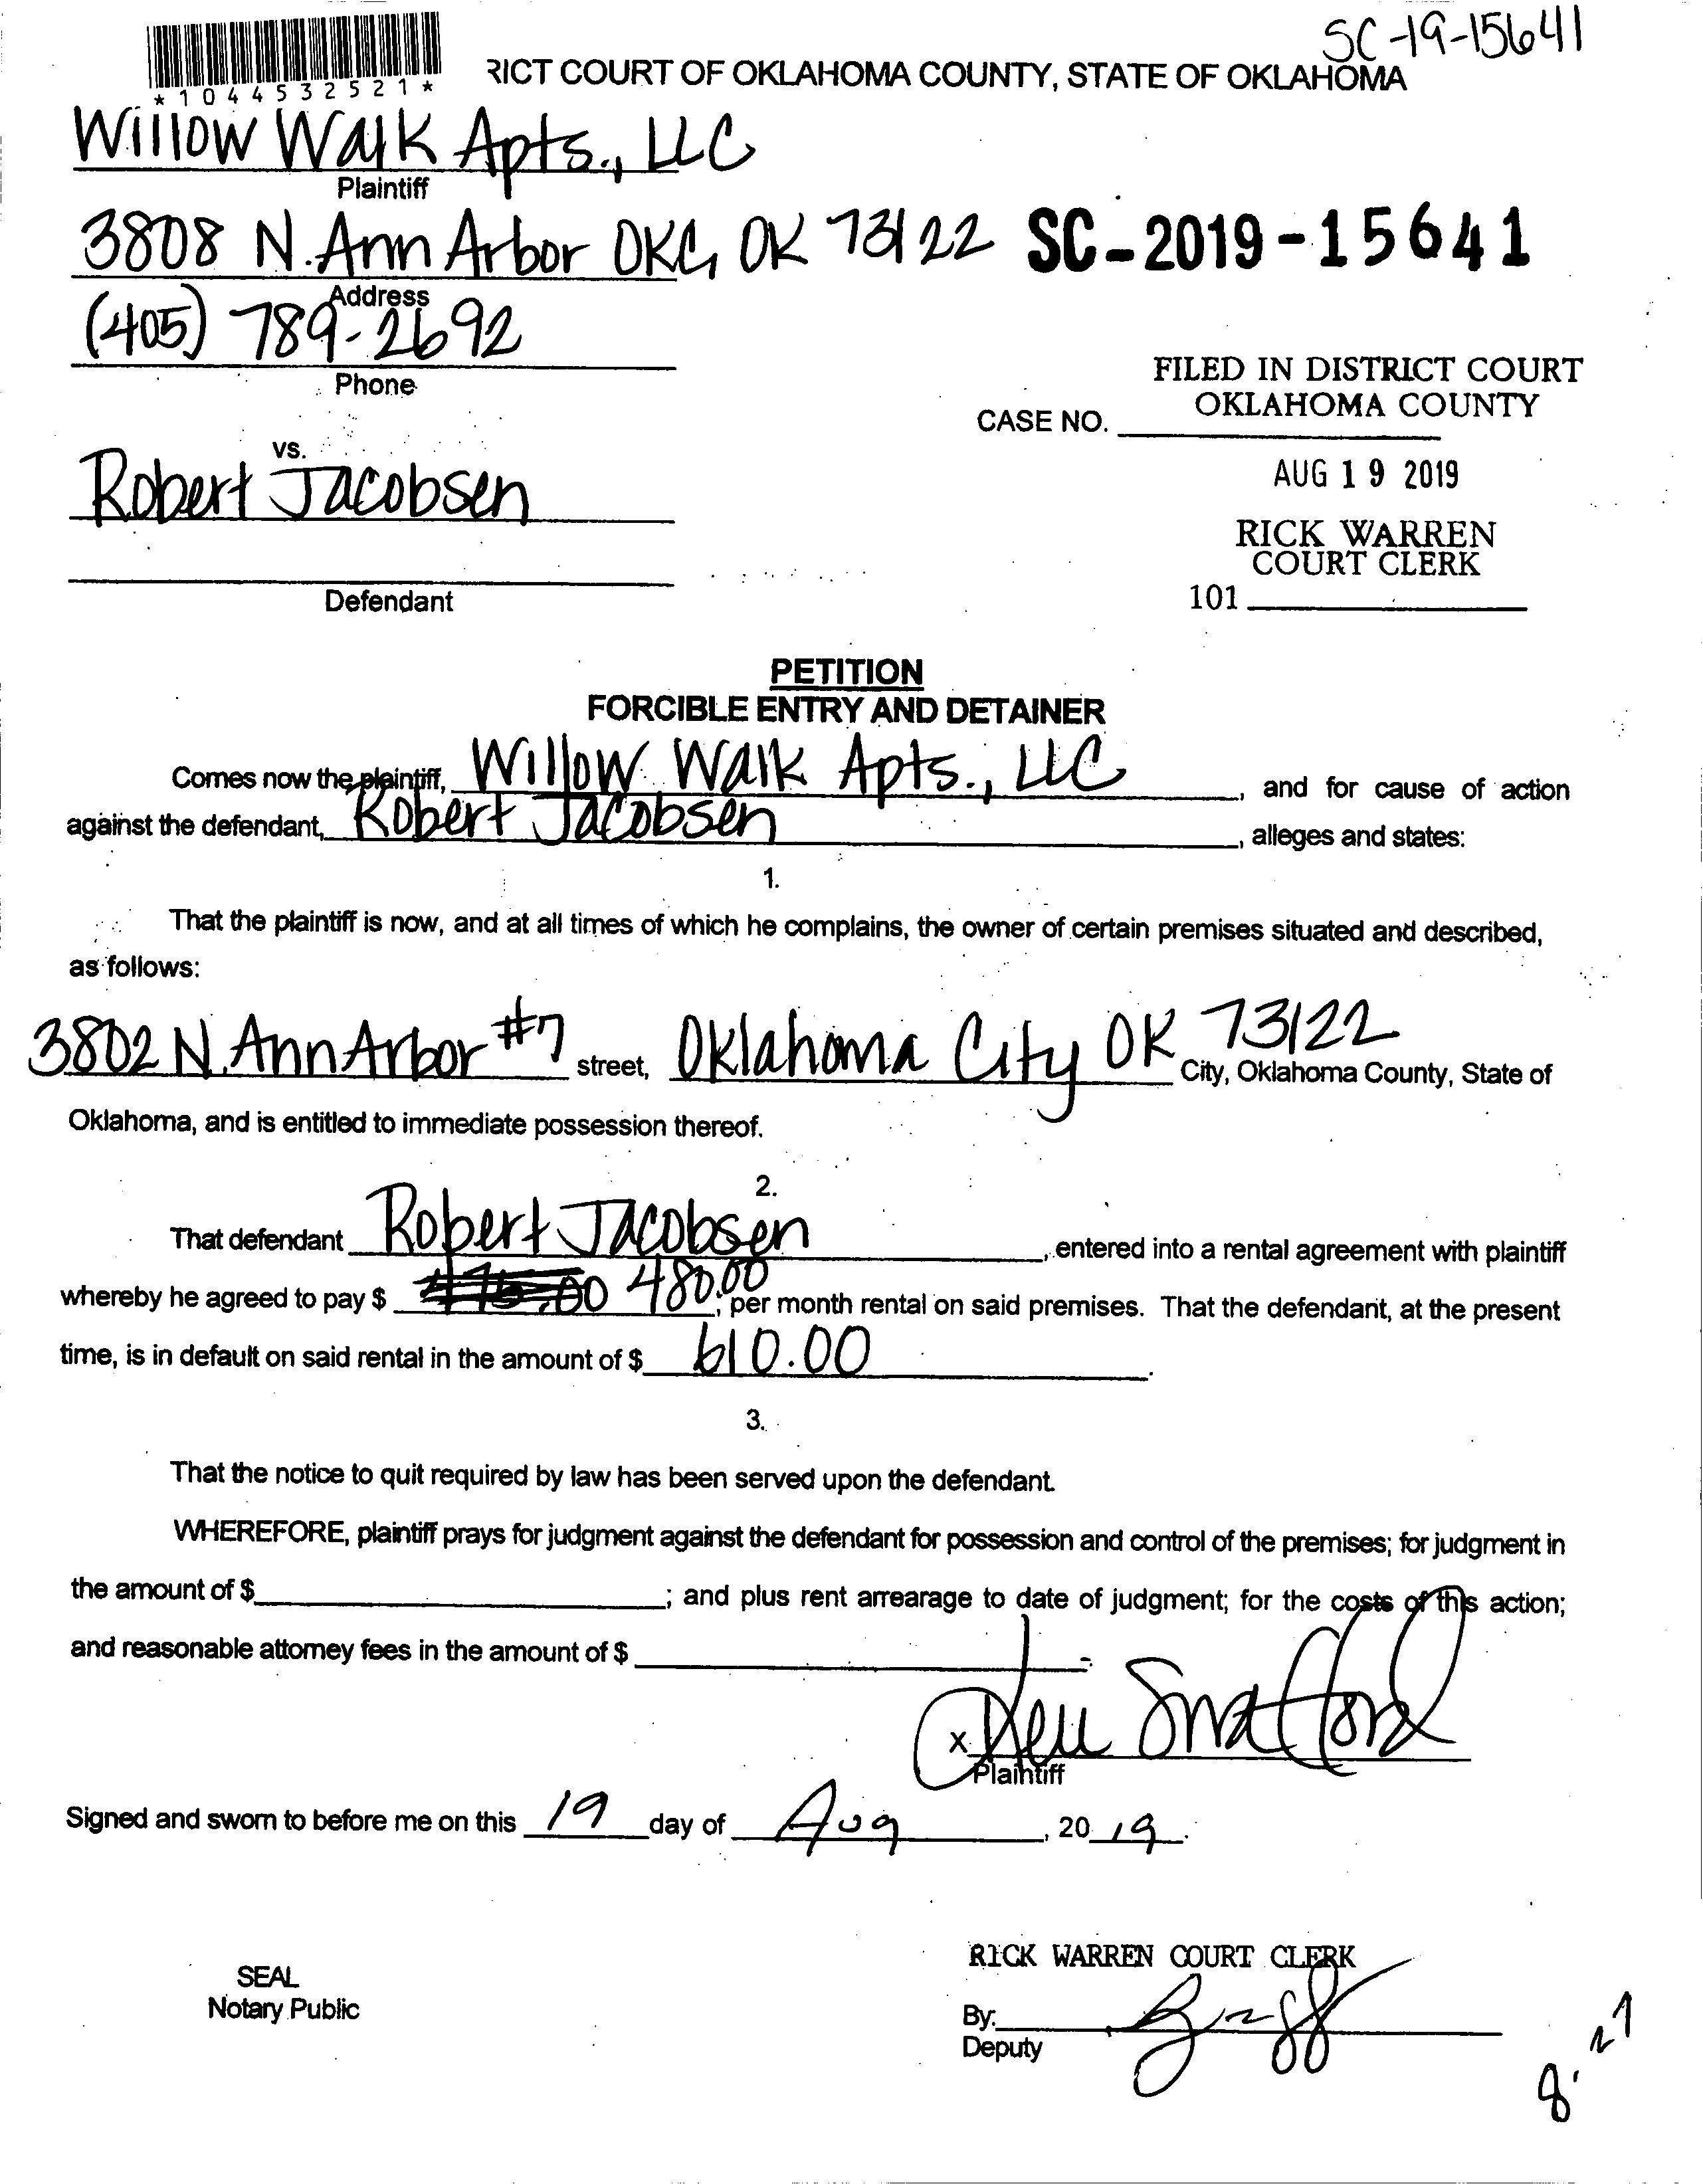 SC-19-15641
*1044532521*
RICT COURT OF OKLAHOMA COUNTY, STATE OF OKLAHOMA
Willow Walk Apts., LLC
Plaintiff
3808 N. Ann Arbor OKC, OK 73122
SC-2019-15641
Address
(405) 789-2692
Phone
FILED IN DISTRICT COURT
OKLAHOMA COUNTY
CASE NO.
vs.
AUG 19 2019
Robert Jacobsen
RICK WARREN
COURT CLERK
Defendant
101
PETITION
FORCIBLE ENTRY AND DETAINER
Comes now the plaintiff, Willow Walk Apts., LLC, and for cause of action
against the defendant, Robert Jacobsen, alleges and states:
1.
That the plaintiff is now, and at all times of which he complains, the owner of certain premises situated and described,
as follows:
3802 N. Ann Arbor #7 street, Oklahoma City OK 73122 City, Oklahoma County, State of
Oklahoma, and is entitled to immediate possession thereof.
2.
That defendant Robert Jacobsen, entered into a rental agreement with plaintiff
whereby he agreed to pay $ 480.00; per month rental on said premises. That the defendant, at the present
time, is in default on said rental in the amount of $ 610.00.
3.
That the notice to quit required by law has been served upon the defendant.
WHEREFORE, plaintiff prays for judgment against the defendant for possession and control of the premises; for judgment in
the amount of $ ; and plus rent arrearage to date of judgment; for the costs of this action;
and reasonable attorney fees in the amount of $ .
X
Plaintiff
Signed and sworn to before me on this 19 day of Aug, 20 19.
RICK WARREN COURT CLERK
SEAL
Notary Public
By:
Deputy
8.27